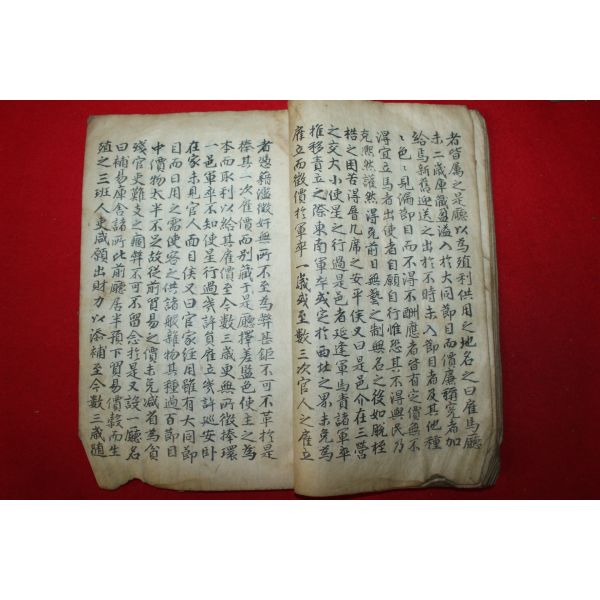 者皆属之是廳以為殖利供用之地名之曰雇馬廳
未二歲庫藏盈溢入於大同節目而價廉稱寃者加
給馬新舊迎送之出於不時未入節目者及其他種
〻色〻見漏節目而不得不酬應者皆有定價無不
得宜立馬者出使者自願自行惟恐其不得與民乃
克熙熙謔然得免前日無藝之制無名之後如脫桎
梏之困苦得曆几席之安平侯又曰是邑介在三營
之交大小使星之行過是邑者延逢軍馬責諸軍卒
推移責立之際東南軍卒或定於西北之界未免為
雇立而徵價於軍卒一歲或至數三次官人之雇立
者憑籍濫徵奸無所不至為弊甚鉅不可不革於是
捧其一次雇價而别藏于是廳擇差監色使主之為
本而取利以給其雇價至今數三歲更無所徵捧環
一邑軍卒不知使星行過幾許負雇立幾許巡安卧
在家未見官人而目侯又曰官家經用雖有大同節
目而日用之需使客之供諸般雜物其種過百節目
中價物太半不足故從前貿易之價未免减省為貧
殘官吏難支之痼弊不可不留念於是又設一廳名
曰補易庫舍諸所此前廳居半預下貿易價穀而生
殖之三班人吏咸願出財力以添補至今數三歲随